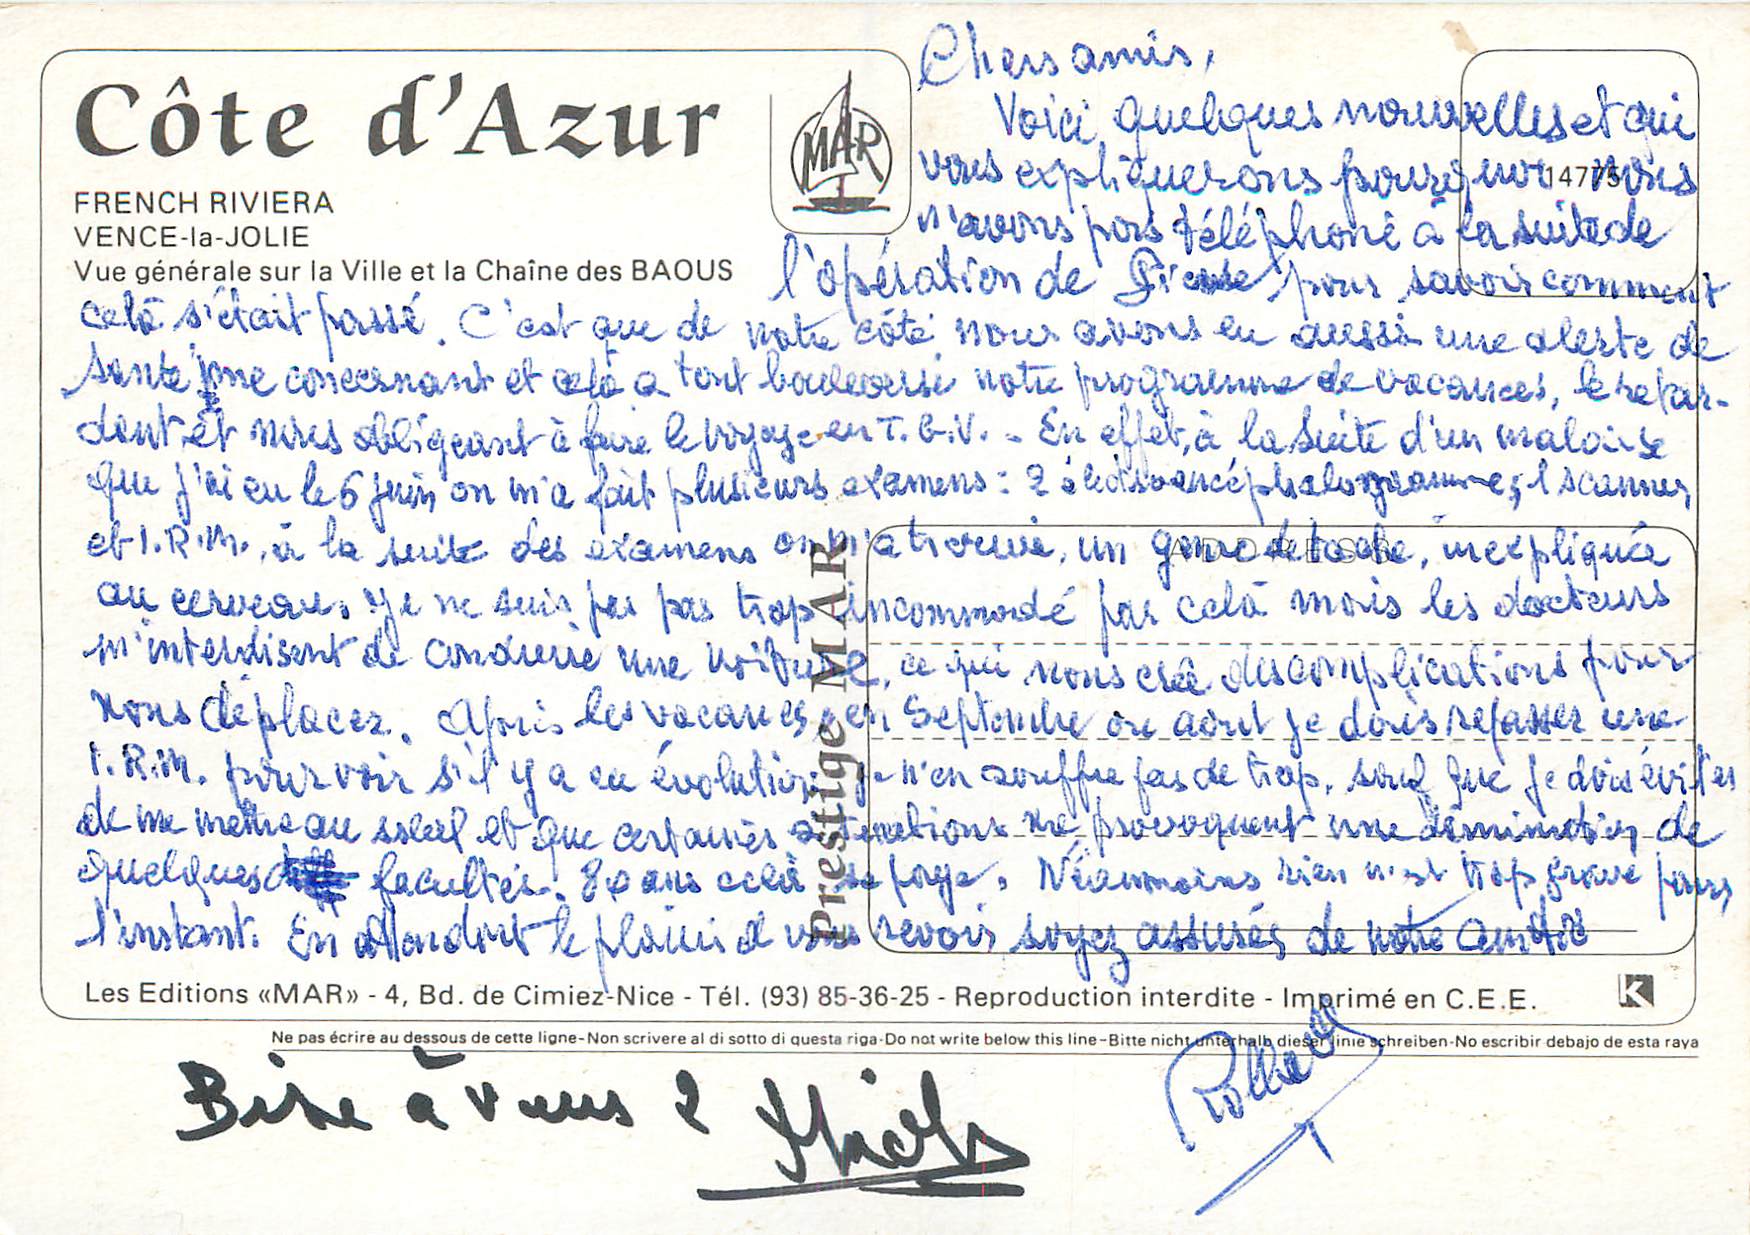 Côte d'Azur
FRENCH RIVIERA
VENCE-la-JOLIE
Vue générale sur la Ville et la Chaîne des BAOUS
MAR
14775
Chers amis,
Voici quelques nouvelles et qui
vous expliquerons pourquoi nous
n'avons pas téléphoné à la suite de
l'opération de pour savoir comment
celà s'était passé. C'est que de notre côté nous avons eu aussi une alerte de
santé me concernant et celà a tout bouleversé notre programme de vacances, le retar-
dant et nous obligeant à faire le voyage en T.G.V. - En effet, à la suite d'un malaise
que j'ai eu le 6 juin on m'a fait plusieurs examens : 2 électroencéphalogrammes, 1 scanner
et I.R.M., à la suite des examens on m'a trouvé, un genre de tache, inexpliquée
au cerveau. Je ne suis pas pas trop incommodé par celà mais les docteurs
m'interdisent de conduire une voiture, ce qui nous crée des complications pour
nous déplacer. Après les vacances, en Septembre ou août je dois repasser une
I.R.M. pour voir s'il y a eu évolution, je n'en souffre pas de trop, sauf que je dois éviter
de me mettre au soleil et que certaines émotions me provoquent une diminution de
quelques facultés. 80 ans celà se paye. Néanmoins rien n'est trop grave pour
l'instant. En attendant le plaisir d vous revoir, soyez assurés de notre amitié
ADDRESS
Prestige MAR
Les Editions «MAR» - 4, Bd. de Cimiez-Nice - Tél. (93) 85-36-25 - Reproduction interdite - Imprimé en C.E.E.
K
Ne pas écrire au dessous de cette ligne-Non scrivere al di sotto di questa riga-Do not write below this line-Bitte nicht unterhalb dieser linie schreiben-No escribir debajo de esta raya
Bise à vous 2